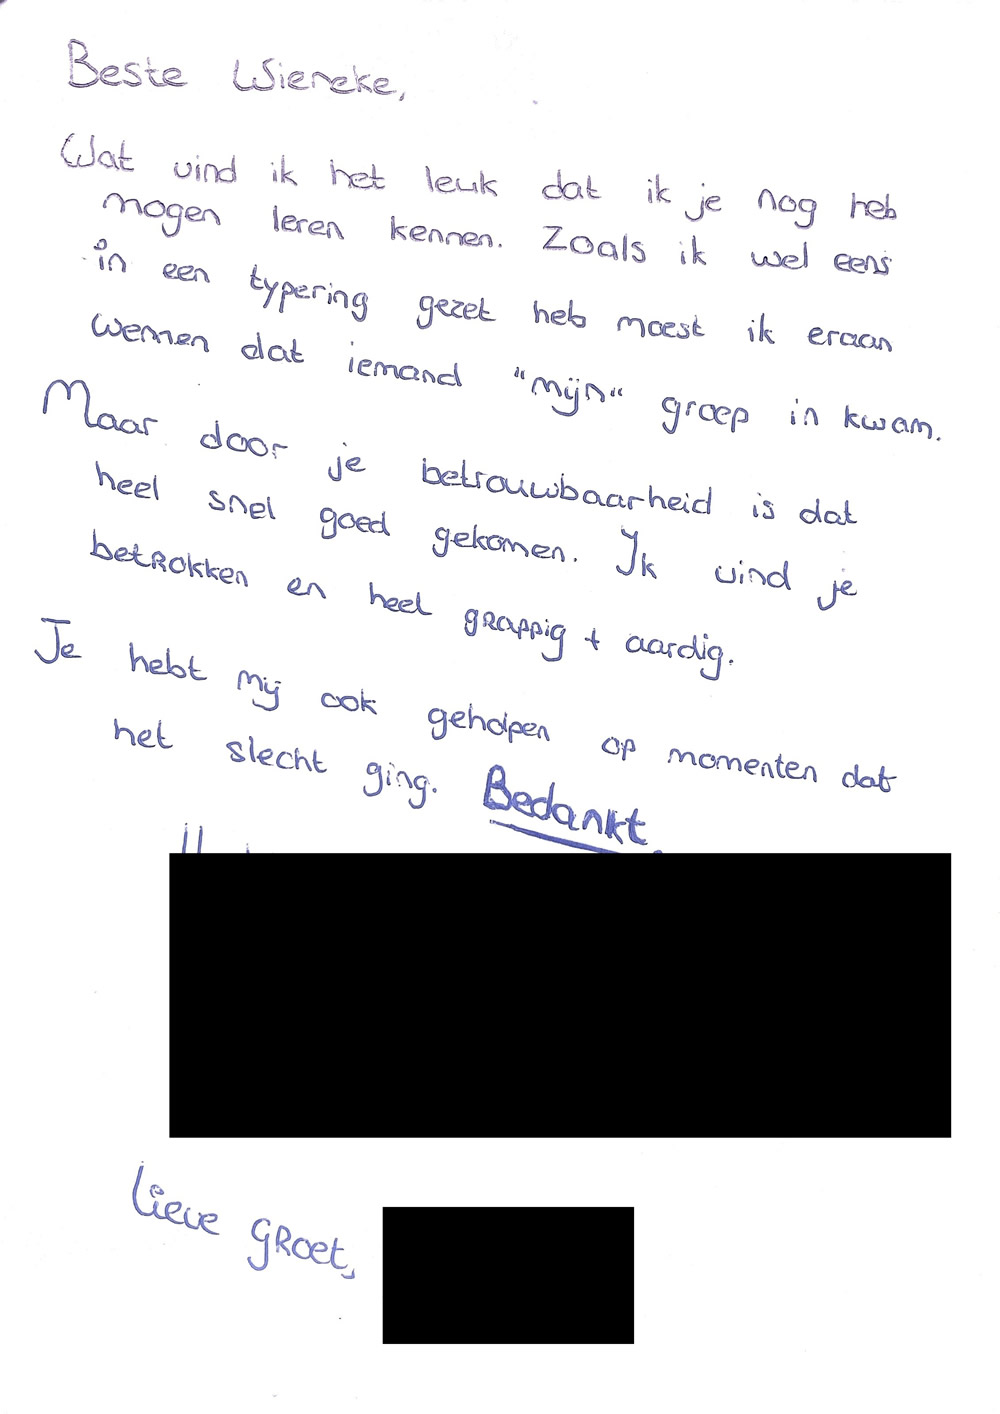 Beste Wieneke,
Wat vind ik het leuk dat ik je nog heb
mogen leren kennen. Zoals ik wel eens
in een typering gezet heb moest ik eraan
wennen dat iemand "mijn" groep in kwam.
Maar door je betrouwbaarheid is dat
heel snel goed gekomen. Ik vind je
betrokken en heel grappig + aardig.
Je hebt mij ook geholpen op momenten dat
het slecht ging. Bedankt.
Lieve groet,